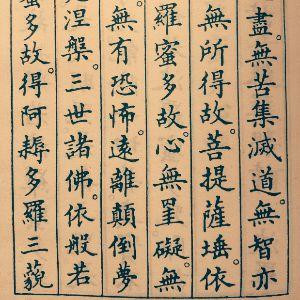 盡。無苦集滅道。無智亦
無所得故。菩提薩埵。依
羅蜜多故。心無罣礙。無
無有恐怖。遠離顛倒夢
涅槃。三世諸佛。依般若
蜜多故。得阿耨多羅三藐